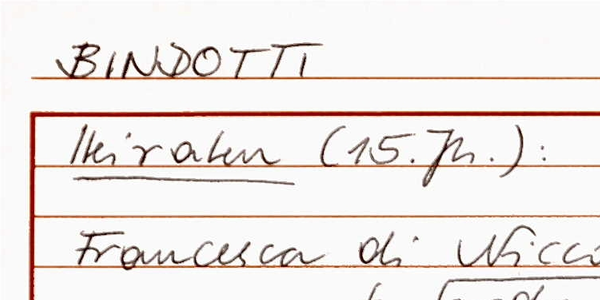 BINDOTTI
Heiraten (15. Jh.):
Francesca di Nicco